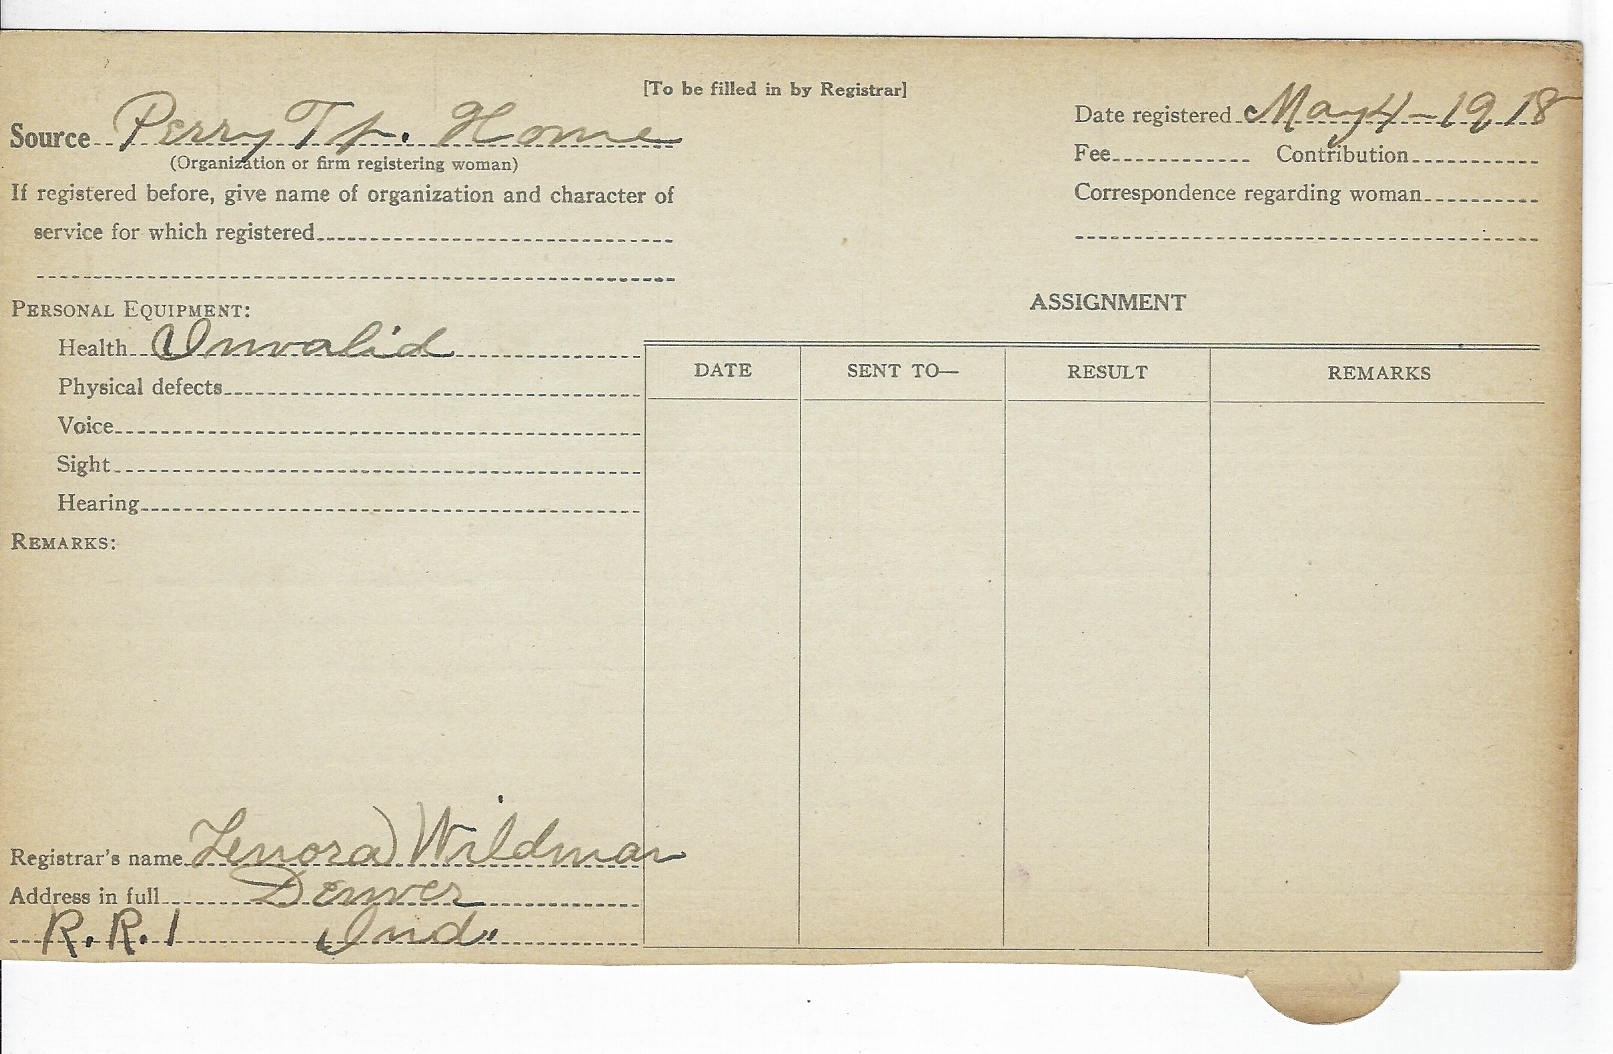 [To be filled in by Registrar]
Source Perry Tp. Home
(Organization or firm registering woman)
If registered before, give name of organization and character of
service for which registered
Date registered May 4-1918
Fee Contribution
Correspondence regarding woman
PERSONAL EQUIPMENT:
Health Invalid
Physical defects
Voice
Sight
Hearing
REMARKS:
ASSIGNMENT
DATE SENT TO— RESULT REMARKS
Registrar's name Lenora Wildman
Address in full Denver
R.R.1 Ind.